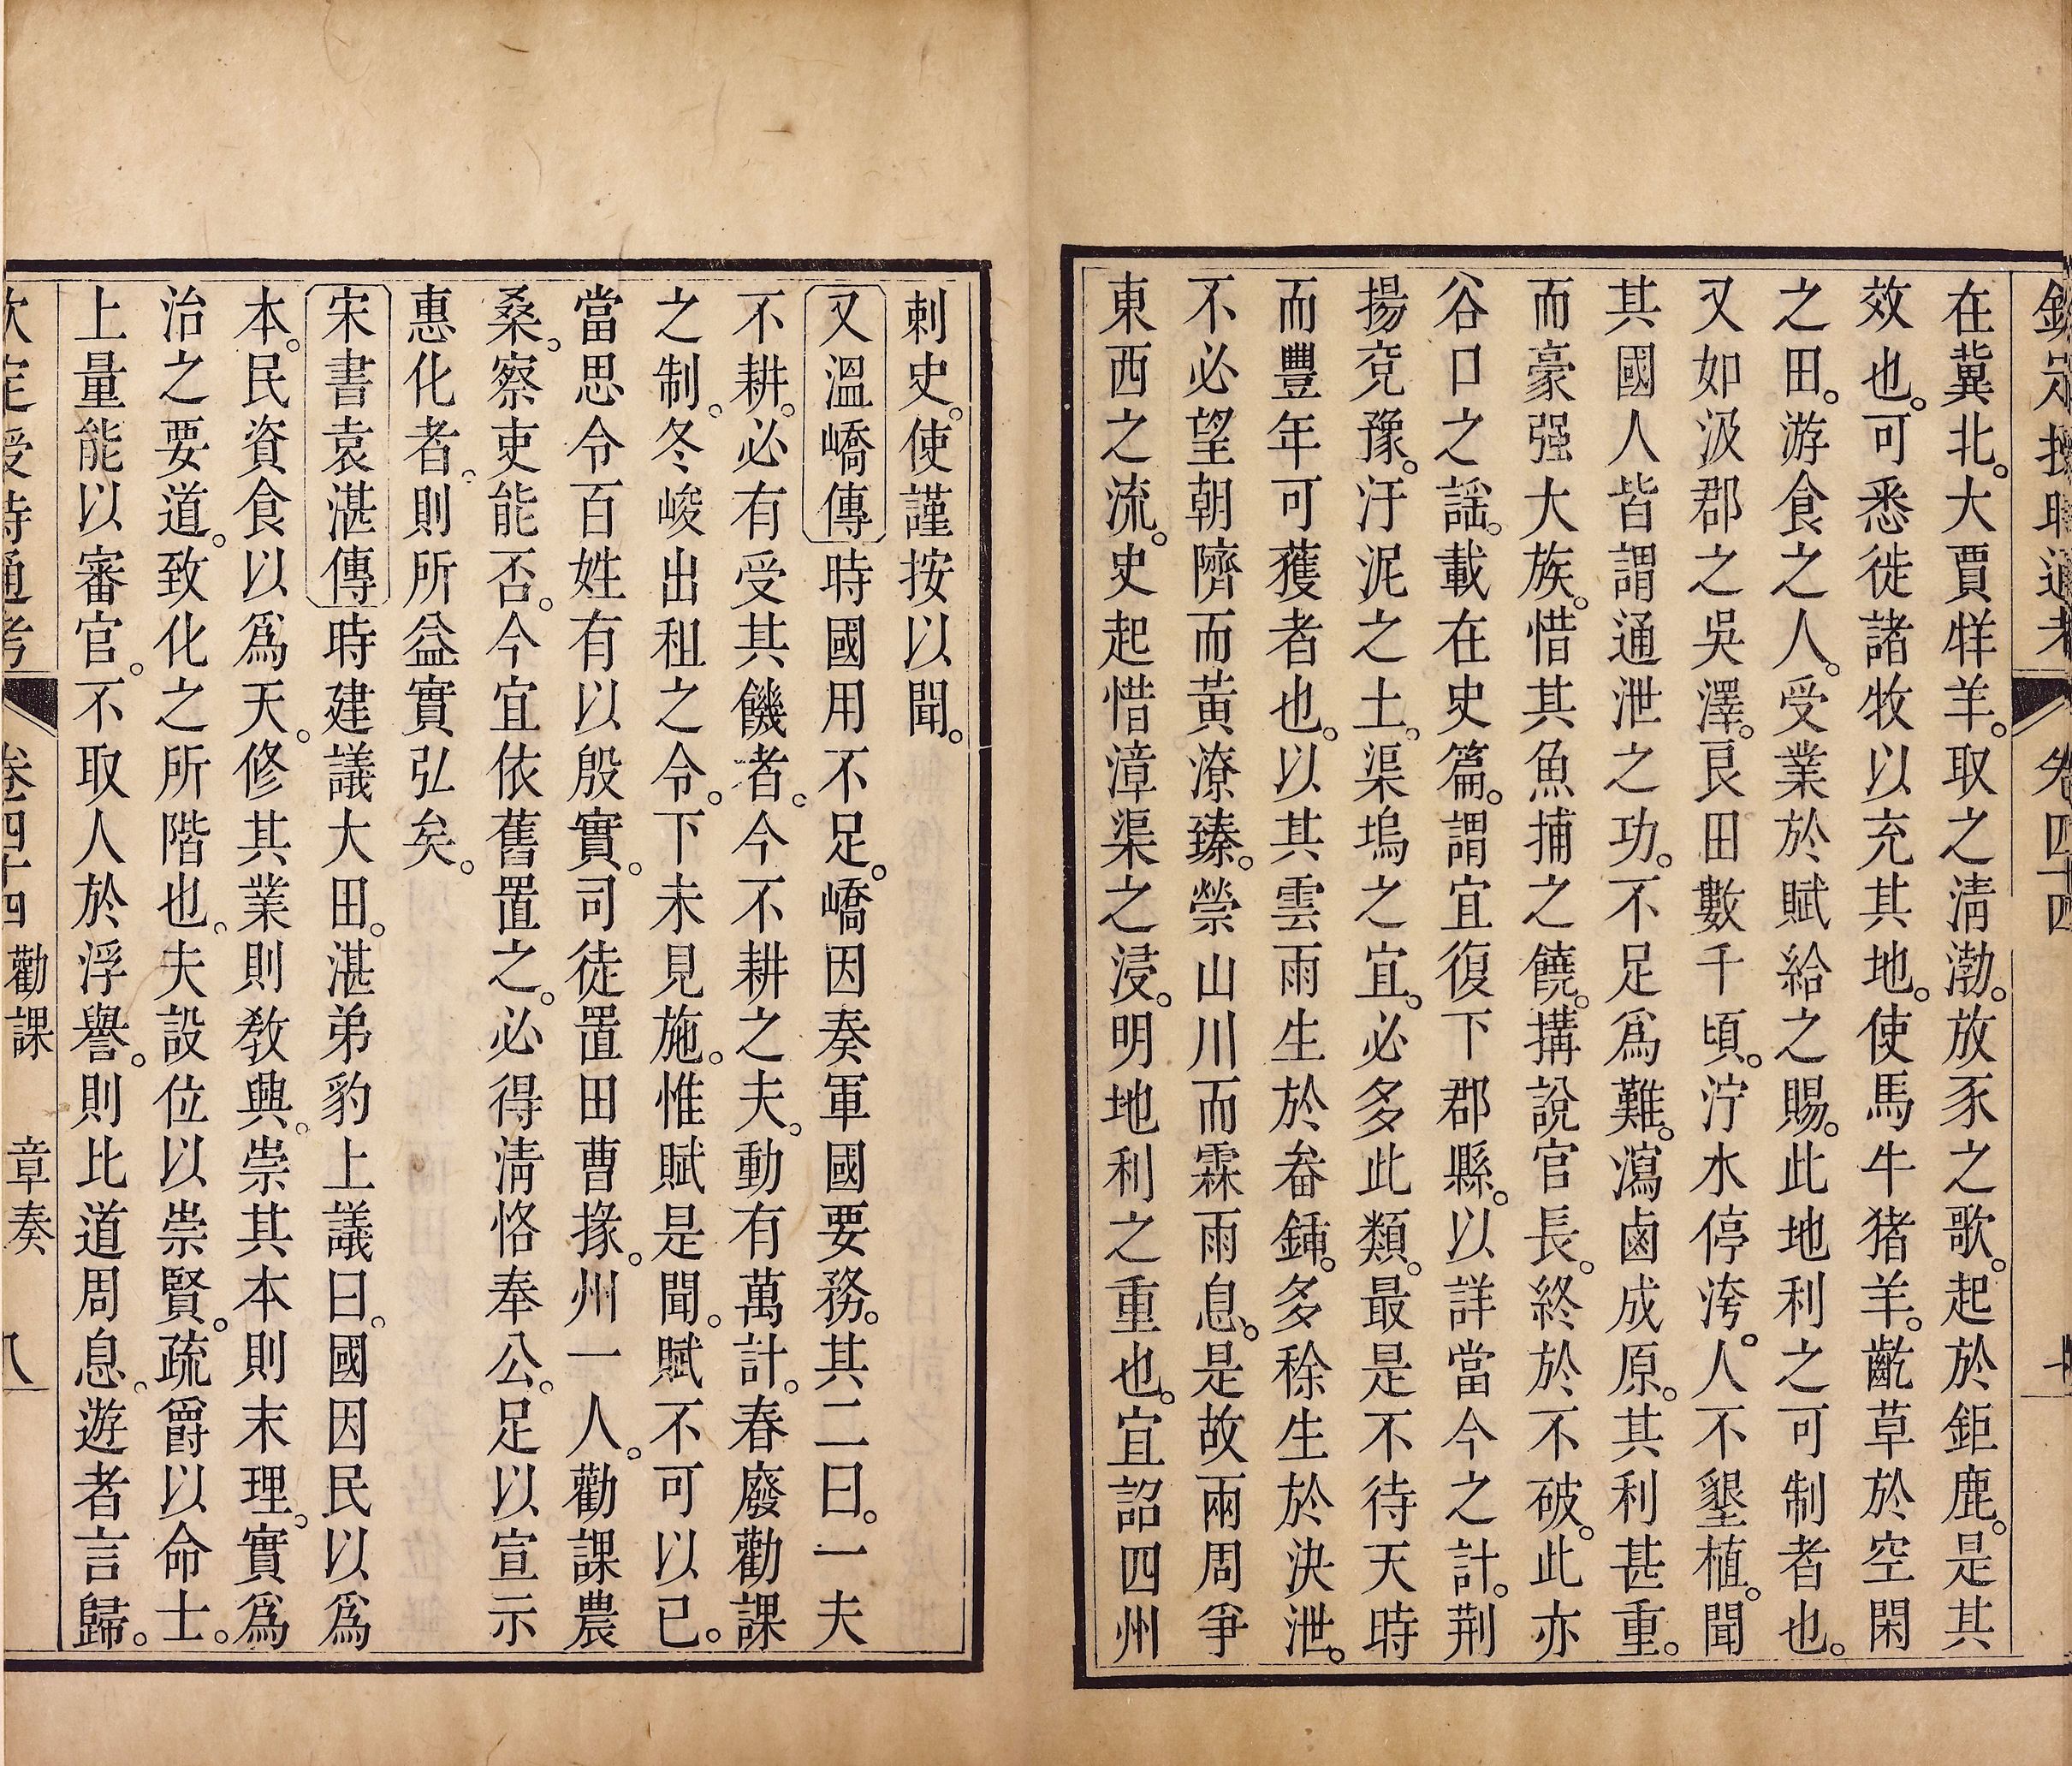 欽定授時通考　卷四十四
在冀北。大賈牂羊。取之淸渤。放豕之歌。起於鉅鹿。是其
效也。可悉徙諸牧以充其地。使馬牛猪羊。齕草於空閑
之田。游食之人。受業於賦給之賜。此地利之可制者也。
又如汲郡之吳澤。良田數千頃。泞水停洿。人不墾植。聞
其國人皆謂通泄之功。不足爲難。瀉鹵成原。其利甚重。
而豪强大族。惜其魚捕之饒。搆說官長。終於不破。此亦
谷口之謡。載在史篇。謂宜復下郡縣。以詳當今之計。荆
揚兗豫。汙泥之土。渠塢之宜。必多此類。最是不待天時
而豐年可獲者也。以其雲雨生於畚鍤。多稌生於決泄。
不必望朝隮而黃潦臻。禜山川而霖雨息。是故兩周爭
東西之流。史起惜漳渠之浸。明地利之重也。宜詔四州
刺史。使謹按以聞。
又溫嶠傳時國用不足。嶠因奏軍國要務。其二曰。一夫
不耕。必有受其饑者。今不耕之夫。動有萬計。春廢勸課
之制。冬峻出租之令。下未見施。惟賦是聞。賦不可以已。
當思令百姓有以殷實。司徒置田曹掾。州一人。勸課農
桑。察吏能否。今宜依舊置之。必得淸恪奉公。足以宣示
惠化者。則所益實弘矣。
宋書袁湛傳時建議大田。湛弟豹上議曰。國因民以爲
本。民資食以爲天。修其業則敎興。崇其本則末理。實爲
治之要道。致化之所階也。夫設位以崇賢。疏爵以命士。
上量能以審官。不取人於浮譽。則比道周息。遊者言歸。
欽定授時通考　卷四十四　勸課　章奏　八